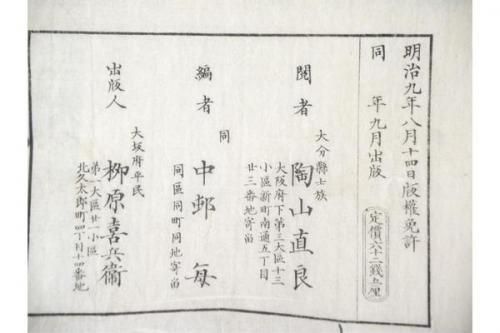 明治九年八月十四日版權免許
同　年九月出版
定價六十二錢五厘
閲者
大分縣士族
陶山直良
大阪府下第三大區十三
小區新町南通五丁目
廿三番地寄留
編者
同
中邨　每
同區同町同地寄留
出版人
大坂府平民
柳原喜兵衛
第一大區廿一小區
北久太郎町四丁目十四番地